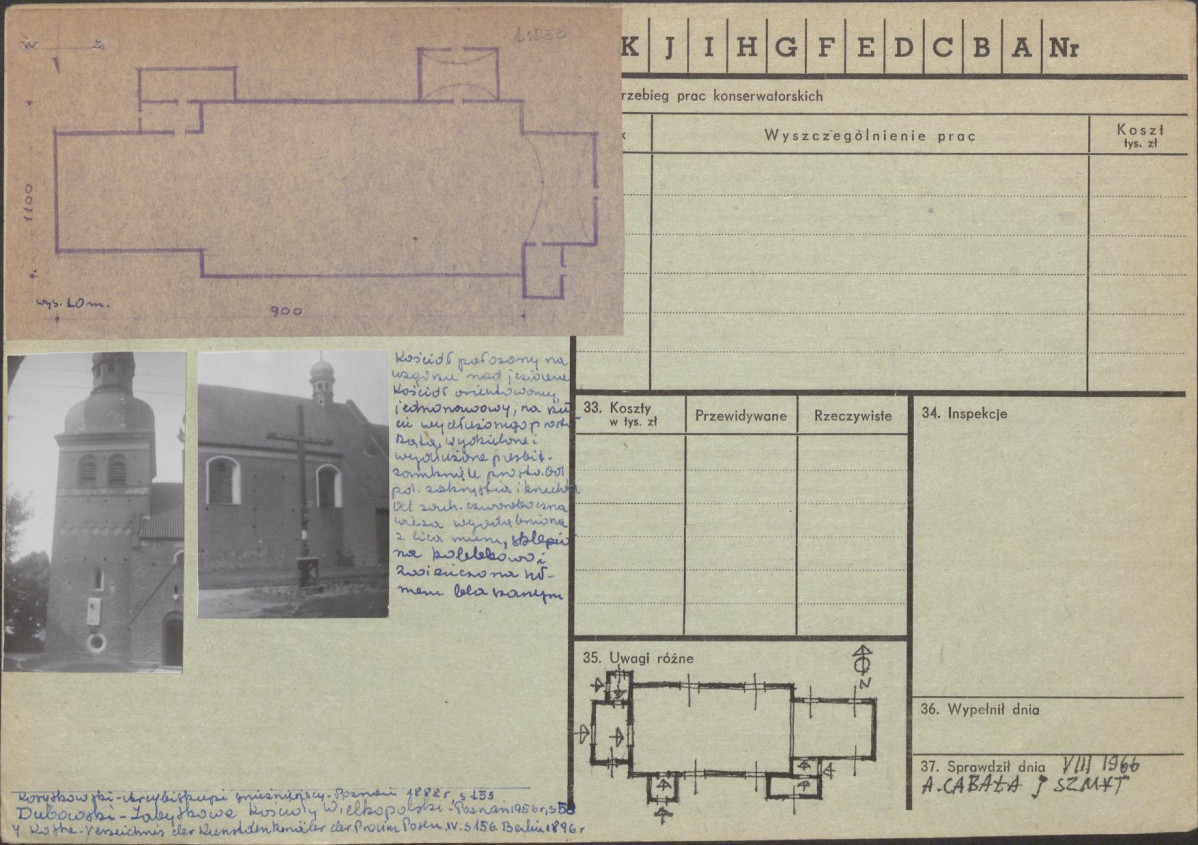 K J I H G F E D C B A Nr
rzebieg prac konserwatorskich
Wyszczególnienie prac
Koszt
tys. zł
1100
wys. 10 m.
900
Kościół położony na
wzgórzu nad jeziorem
Kościół orientowany,
jednonawowy, na
wydłużonego
wydzielone i
zamknięte prosto. Od
płd. zakrystia i kruchta
Od zach. czworoboczna
wieża wyodrębniona
z lica muru,
na kolebkowo i
zwieńczona heł-
mem blaszanym
33. Koszty
w tys. zł
Przewidywane
Rzeczywiste
34. Inspekcje
35. Uwagi różne
N
36. Wypełnił dnia
37. Sprawdził dnia VIII 1966
A. CABAŁA J SZMYT
Korytkowski - Arcybiskupi gnieźnieńscy - Poznań 1888 r. s 153
Dubowski - Zabytkowe Kościoły Wielkopolski - Poznań 1956 r, s
J Kothe - Verzeichnis der Kunstdenkmäler der Provinz Posen, IV. s 156. Berlin 1896 r